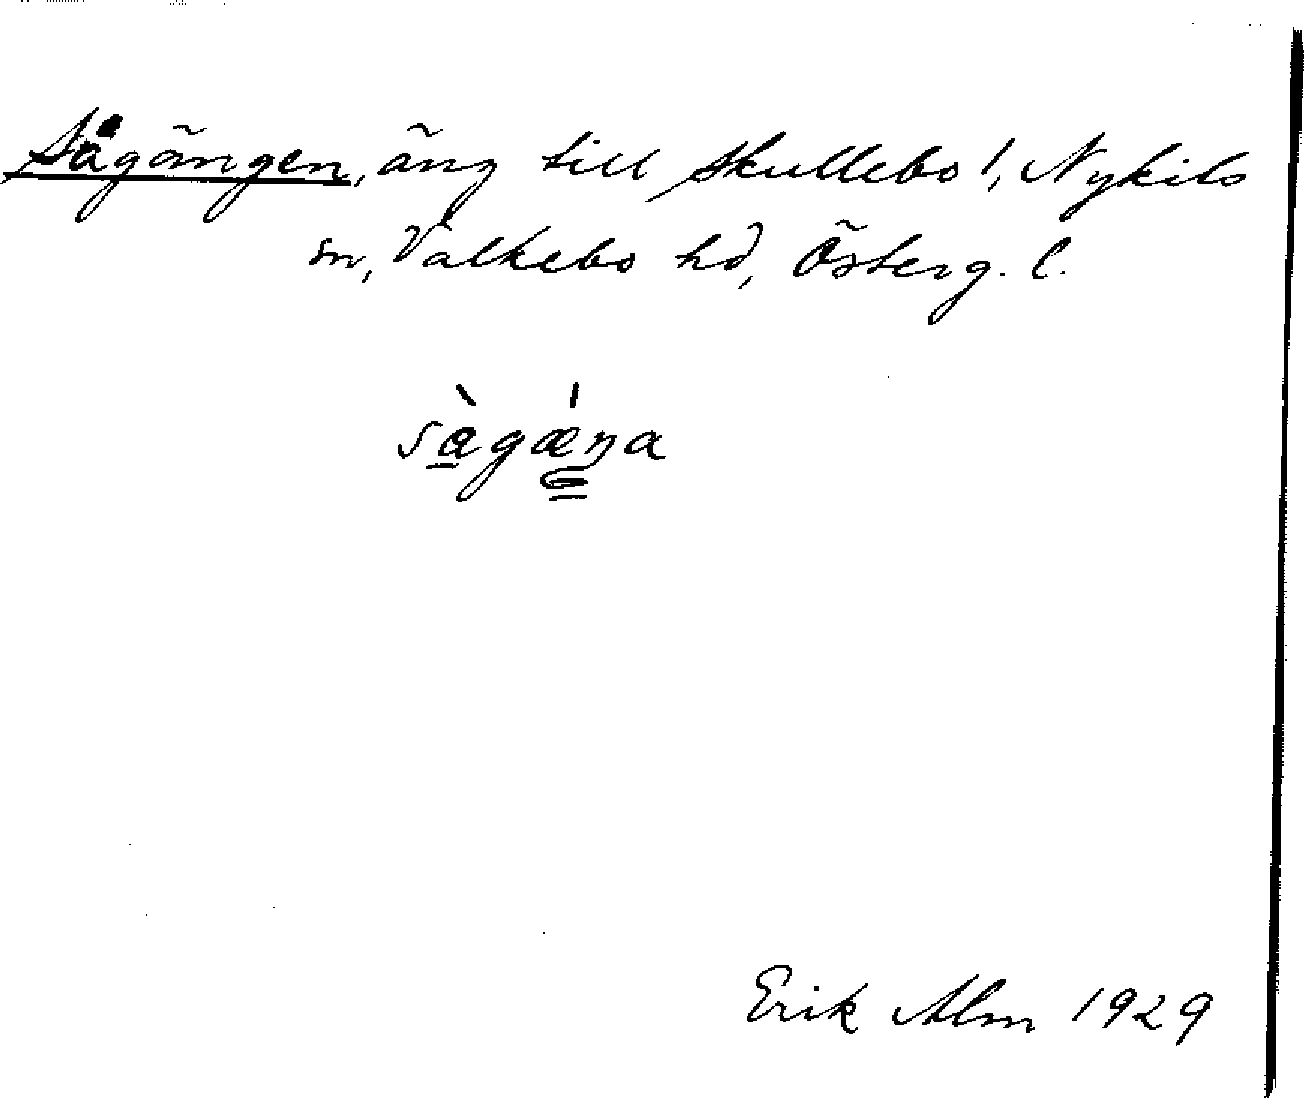 Sågängen, äng till Skullebo!, Nykils
sn, Valkebo hd, Österg. l.
sàgǽŋa
Erik Alm 1929